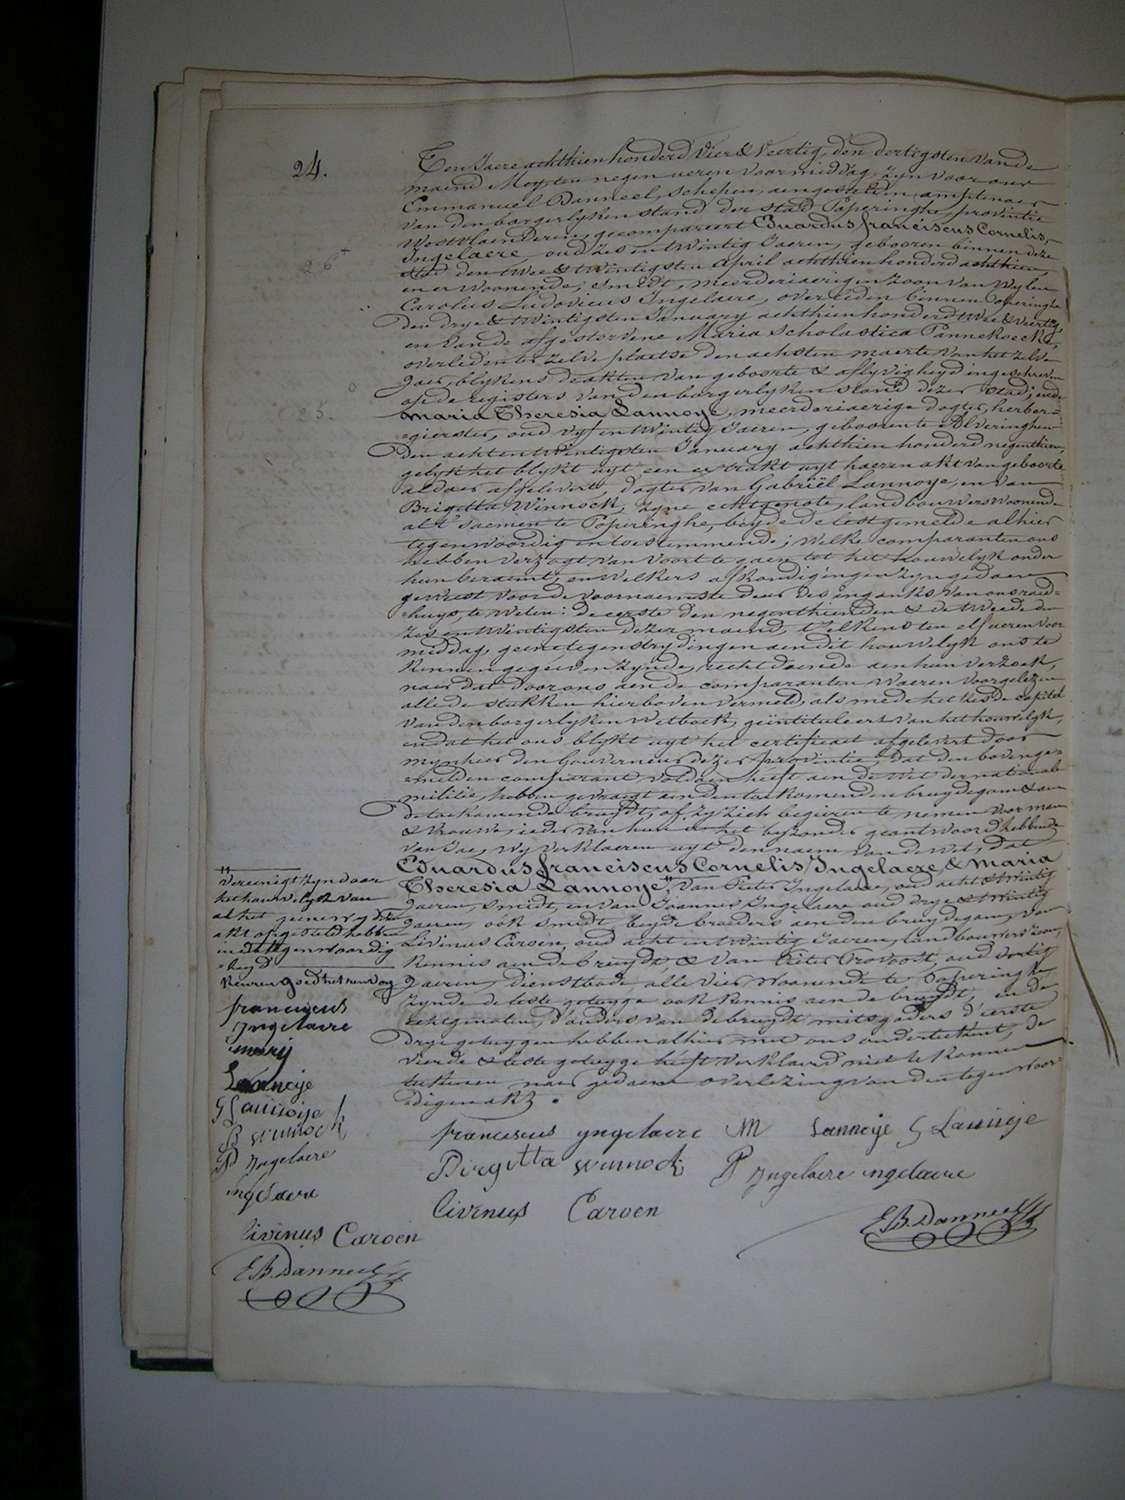 24.
Ten Jaere achthien honderd Vier & Veertig, den dertigsten van de
maend Mey, ten negen ueren voormiddag, zyn voor ons
Emmanuel Danneel, schepen, amptenaer
van den borgerlyken stand der stad Poperinghe, provintie
Westvlaenderen, gecompareert Eduardus franciscus Cornelis,
Ingelaere, oud zes en twintig Jaeren, gebooren binnen deze
stad den twee & twintigsten April achthien honderd achthien,
en er woonende, smidt, meerderjaerigen zoon van wylen
Carolus Ludovicus Ingelaere, overleden binnen Poperinghe
den drye & twintigsten January achthien honderd twee & veertig,
en van de afgestorvene Maria Scholastica Pannekoecke,
overleden ter zelve plaetse den achsten maerte van het zelve
Jaer, blykens de akten van geboorte & aflyvigheyd ingeschreven
op de registers van den borgerlyken stand dezer stad; ende
Maria Theresia Lannoye, meerderjaerige dogter, herber-
gierster, oud vyf en twintig Jaeren, geboren te Alveringhem
den achten twintigsten January achthien honderd negenthien,
gelyk het blykt uyt een extrakt uyt haeren akt van geboorte
aldaer afgelevert, dogter van Gabriël Lannoye, en van
Brigitta Winnock, zyne echtgenote, landbouwers woonende
al t' saemen te Poperinghe, beyde de lestgemelde alhier
tegenwoordig en toestemmende; welke comparanten ons
hebben verzogt van voort te gaen tot het houwelyk onder
hun beraemt, en welkers afkondigingen zyn gedaen
geweest voor de voornaemste deur des ingangs van ons raed-
huys, te weten: de eerste den negenthienden & de tweede den
zes en twintigsten dezer maend, t' elkens ten elf ueren voor
middag, geene tegenstrydingen aen dit houwelyk ons te
kennen gegeven zynde, recht doende aen hun verzoek,
naer dat door ons aen de comparanten waeren voorgelezen
alle de stukken hier boven vermeld, als mede het zesde capitel
van den borgerlyken Wetboek, geïntituleert van het houwelyk,
en dat het ons blykt uyt het certificaet afgelevert door
mynheer den Gouverneur dezer provintie, dat den bovenge-
melden comparant voldaen heeft aen de wet der nationale
militie, hebben gevraegt aen den toekomenden bruydegom & aen
de toekomende bruydt, of zy zich begieren te nemen voor man
& vrouwe; ieder van hun het byzonder geantwoord hebbende
van Jae, Wy verklaeren uyt den naem van de Wet, dat
Eduardus franciscus Cornelis Ingelaere, & Maria
Theresia Lannoye", van Pieter Ingelaere, oud acht & twintig
Jaeren, smidt, en van Joannes Ingelaere oud drye & twintig
Jaeren, ook smidt, beyde broeders aen den bruydegom, van
Livinus Caroen, oud acht en twintig Jaeren, landbouwers zoon,
kennis aen de bruydt, & van Pieter Provoost, oud dertig
Jaeren, dienstbode, alle vier woonende te Poperinghe
zynde de leste getuyge ook kennis aen de bruydt, en de
echtgenoten, d' ouders van de bruydt mitsgaders d' eerste
drye getuygen hebben alhier met ons onderteekent, de
vierde & leste getuyge heeft verklaerd niet te konnen
teekenen, naer gedaene overlezing van den tegenwoor-
digen akt.
"
Vereenigt zyn door
het houwelyk van
al het geene wy dezen
akt opgesteld hebben
in de tegenwoordig
heyd
keuren goed het renvoy
franciscus
Ingelaere
marij
Lannoije
G Lannoije
B winnock
P Ingelaere
ingelaere
livinus Caroen
E B. Danneel
franciscus yngelaere M Lannoije G Lannoije
Birgitta winnock P Ingelaere ingelaere
livinus Caroen
E B. Danneel